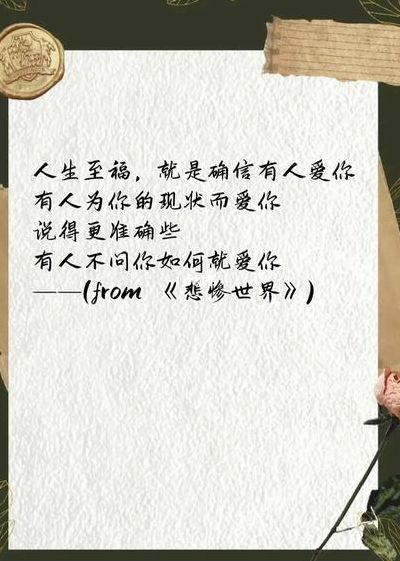 人生至福，就是确信有人爱你
有人为你的现状而爱你
说得更准确些
有人不问你如何就爱你
——(from 《悲惨世界》)